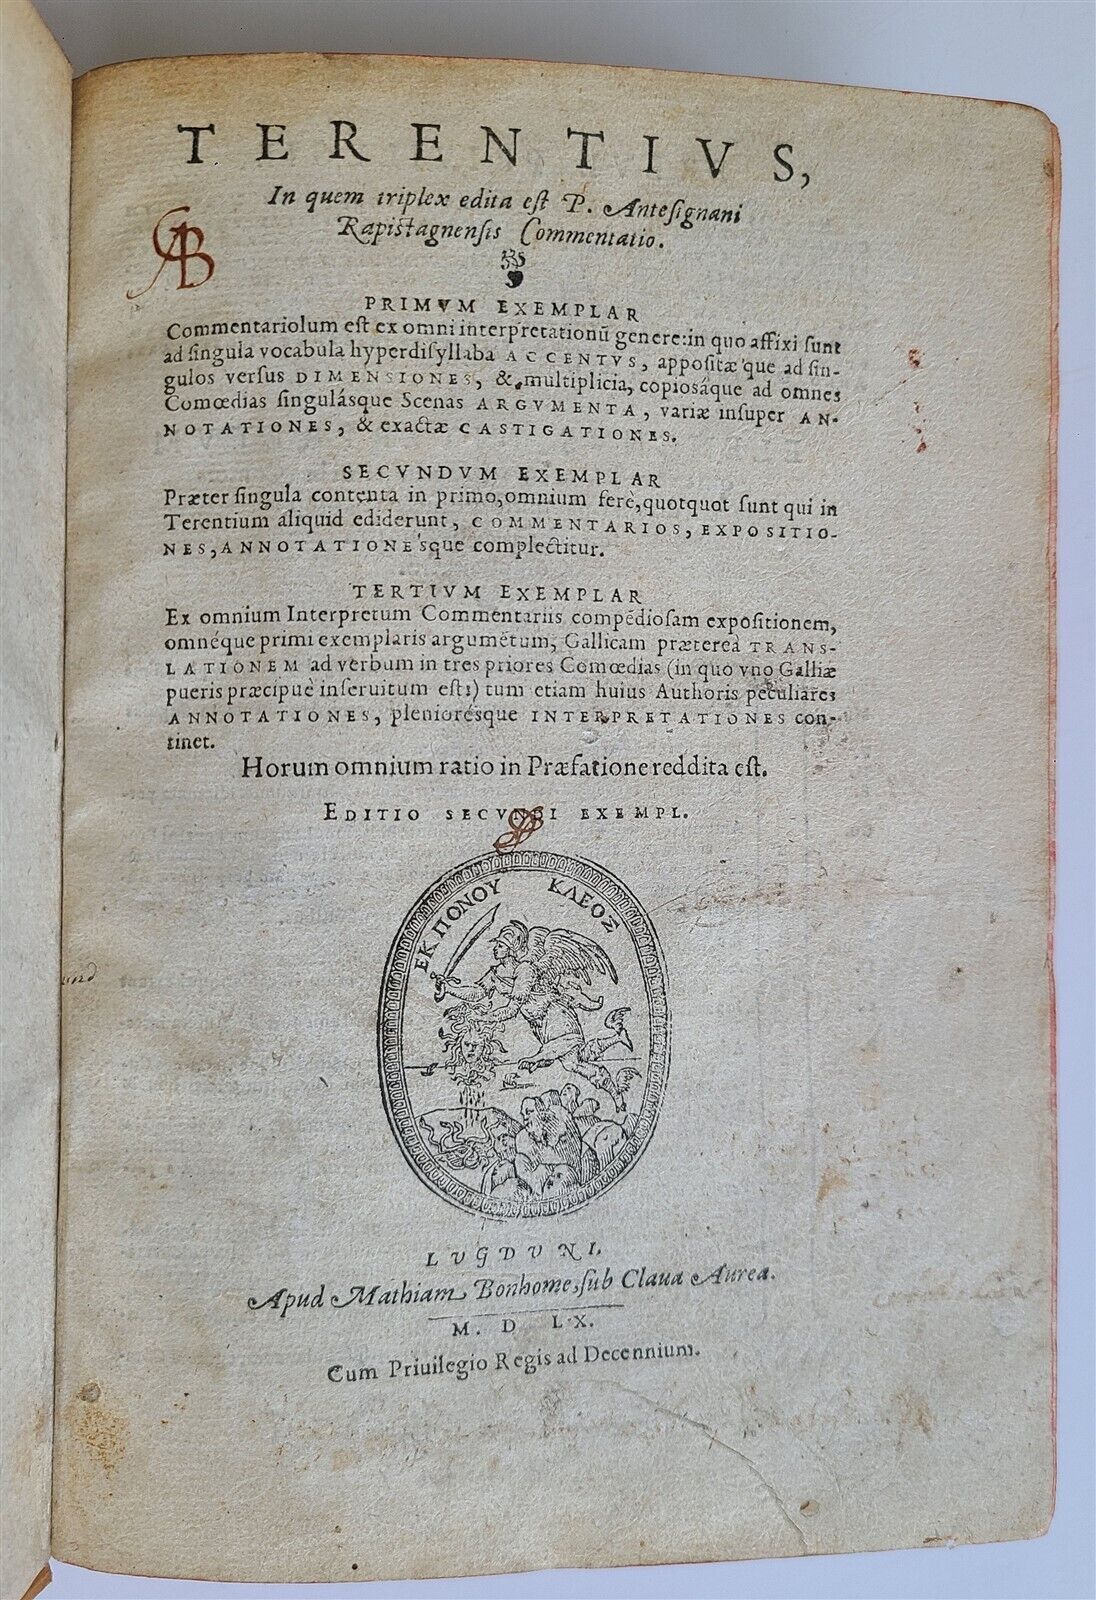 TERENTIVS,
In quem triplex edita est P. Antesignani
Rapistagnensis Commentatio.
PRIMVM EXEMPLAR
Commentariolum est ex omni interpretationū genere: in quo affixi sunt
ad singula vocabula hyperdisyllaba ACCENTVS, appositæ que ad sin-
gulos versus DIMENSIONES, & multiplicia, copiosáque ad omnes
Comœdias singulásque Scenas ARGVMENTA, variæ insuper AN-
NOTATIONES, & exactæ CASTIGATIONES.
SECVNDVM EXEMPLAR
Præter singula contenta in primo, omnium ferè, quotquot sunt qui in
Terentium aliquid ediderunt, COMMENTARIOS, EXPOSITIO-
NES, ANNOTATIONE'sque complectitur.
TERTIVM EXEMPLAR
Ex omnium Interpretum Commentariis compēdiosam expositionem,
omnéque primi exemplaris argumētum, Gallicam præterea TRANS-
LATIONEM ad verbum in tres priores Comœdias (in quo vno Galliæ
pueris præcipuè inseruitum est:) tum etiam huius Authoris peculiares
ANNOTATIONES, plenioresque INTERPRETATIONES con-
tinet.
Horum omnium ratio in Præfatione reddita est.
EDITIO SECVNDI EXEMPL.
ΕΚ ΠΟΝΟΥ ΚΛΕΟΣ
LVGDVNI.
Apud Mathiam Bonhome, sub Claua Aurea.
M. D LX.
Cum Priuilegio Regis ad Decennium.